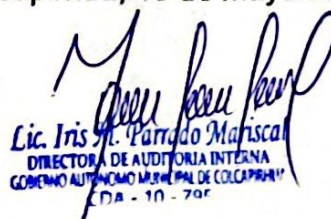 Lic. Iris M. Parrado Mariscal
DIRECTORA DE AUDITORIA INTERNA
GOBIERNO AUTONOMO MUNICIPAL DE COLCAPIRHUA
CDA - 10 - Z95